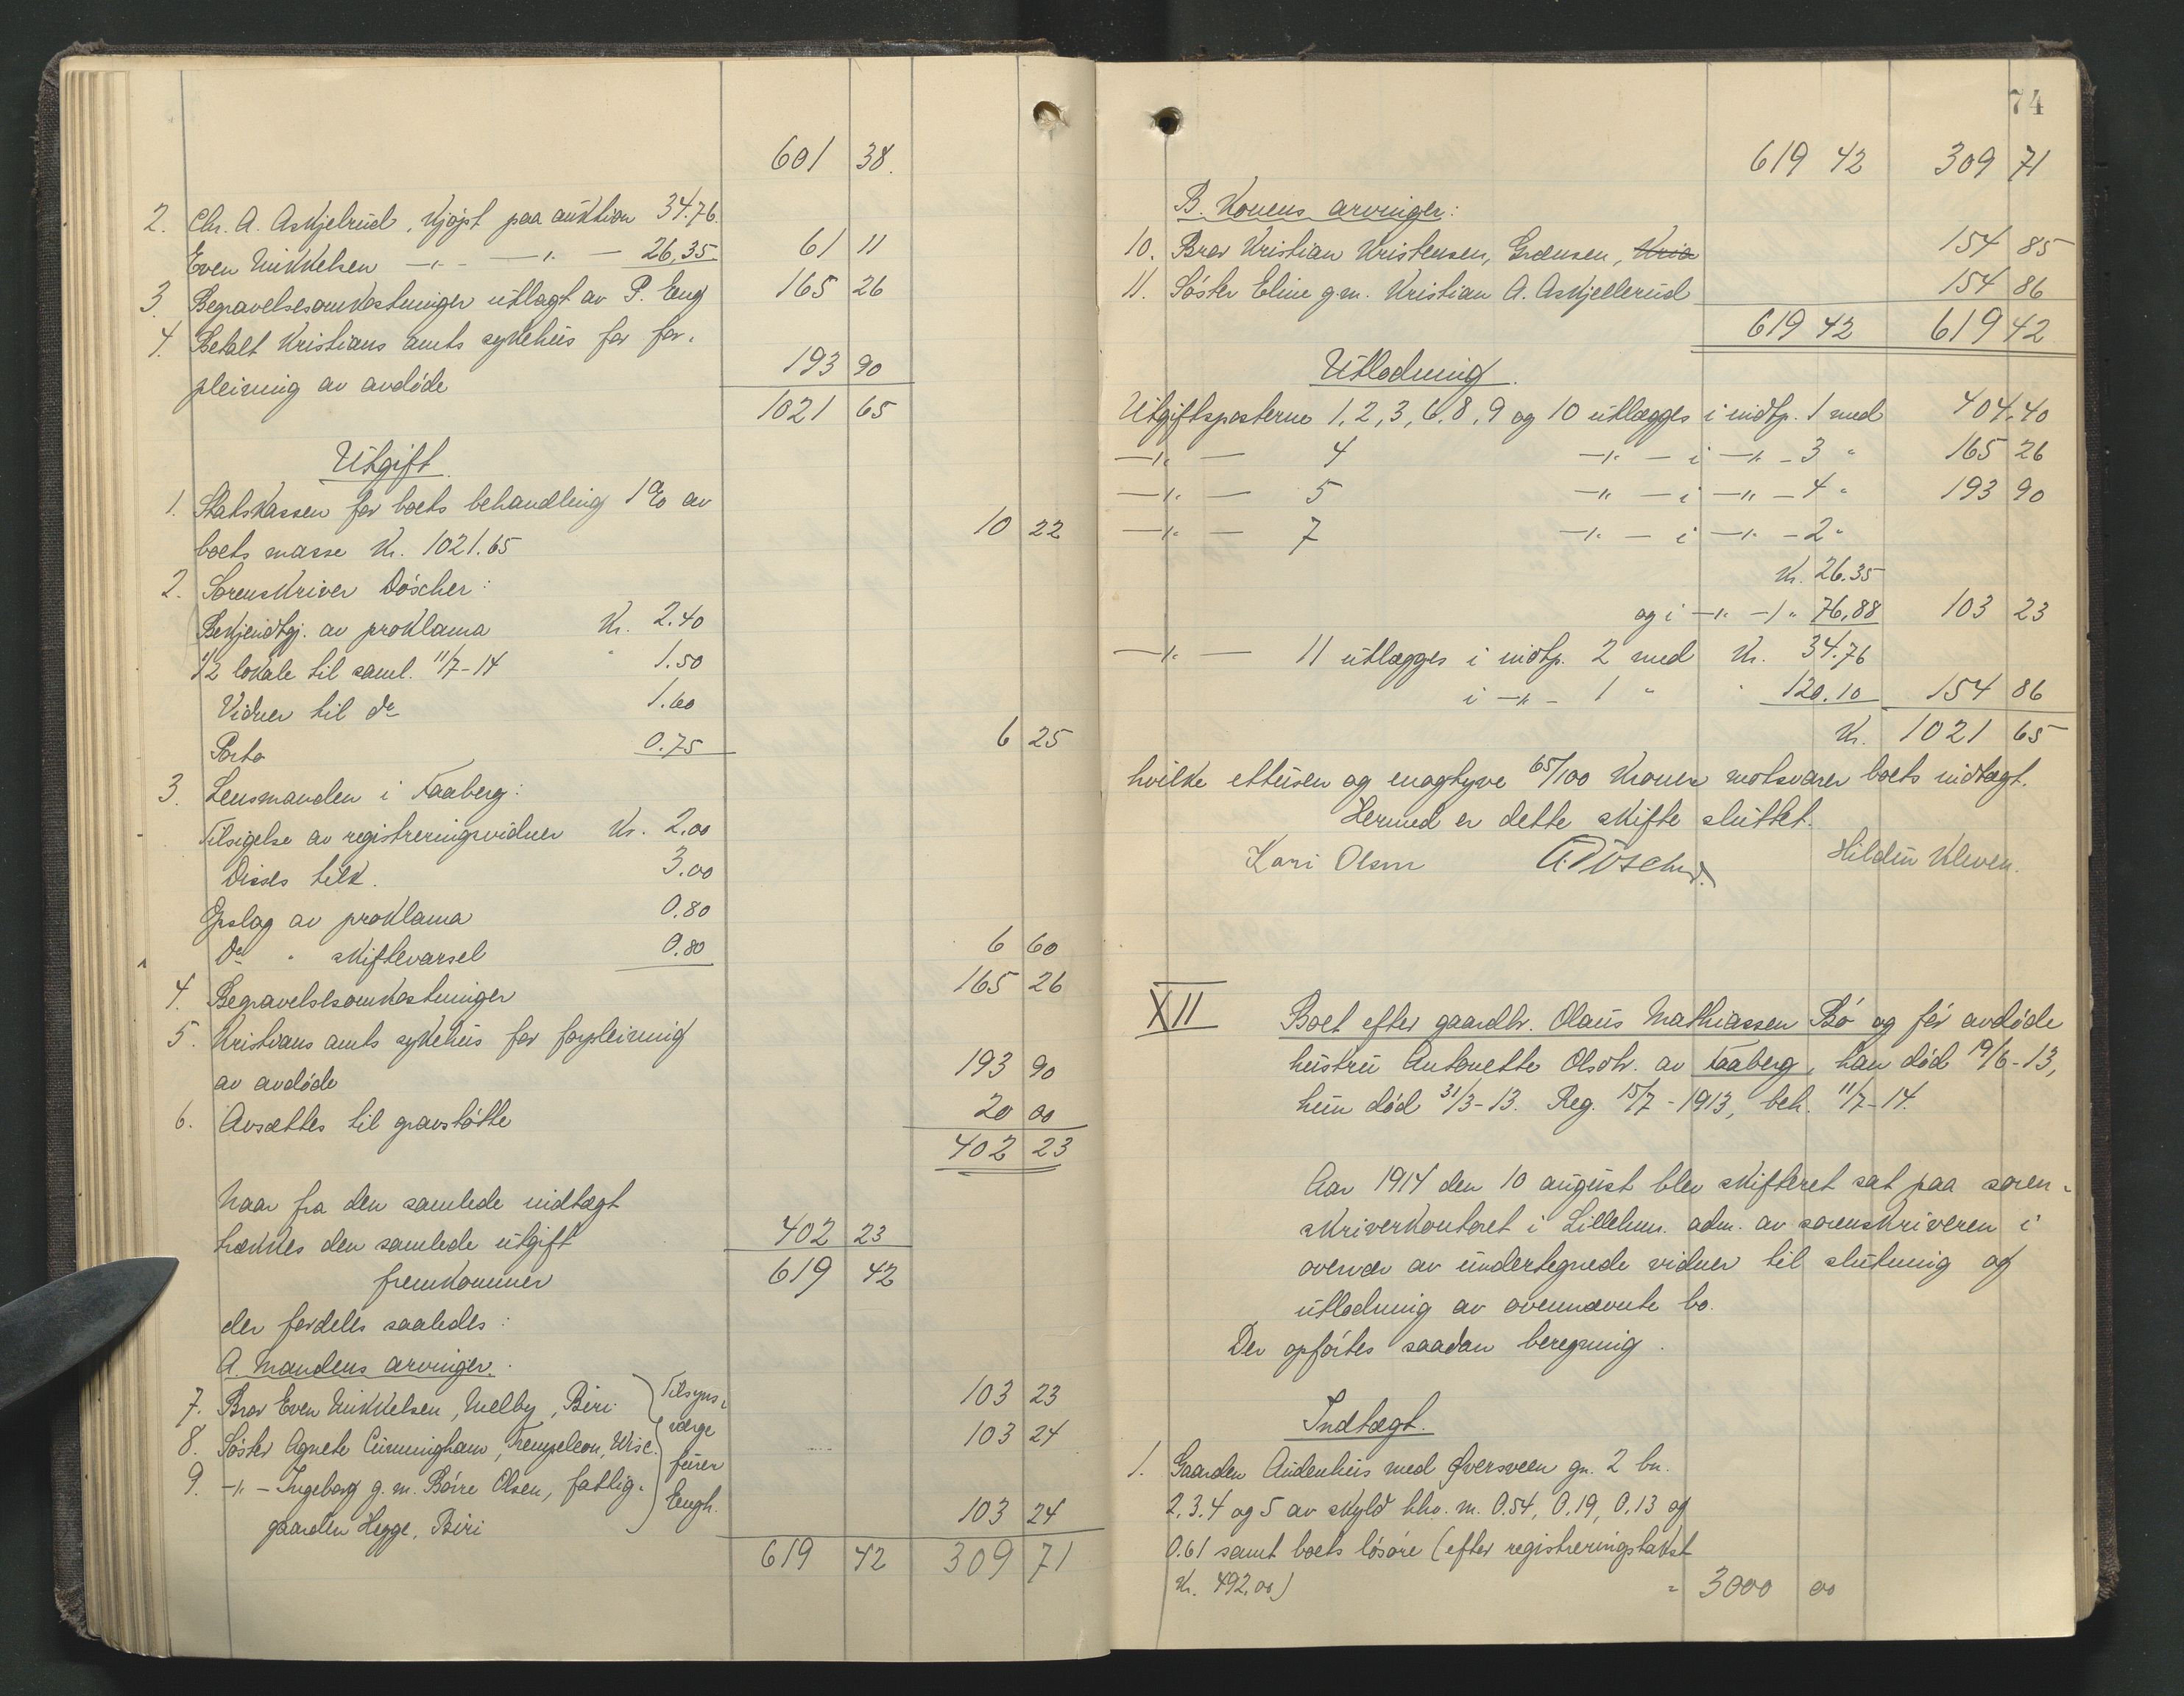 601 38.
2. Chr. A. Askjelrud, kjøpt paa auktion 34.76.
Even Mikkelsen —"— —"— 26,35 61 11
3. Begravelsesomkostninger utlagt av P. Eng 165 26
4. Betalt Kristians amts sykehus for for-
pleining av avdøde 193 90
1021 65
Utgift.
1. Statskassen for boets behandling 1% av
boets masse Kr. 1021.65 10 22
2. Sorenskriver Döscher:
Bekjendtgj. av proklama Kr. 2.40
1/2 lokale til saml. 11/7-14 " 1.50
Vidner til do 1.60
Porto 0.75 6 25
3. Lensmanden i Faaberg:
Tilsigelse av registreringsvidner Kr. 2.00
Disses tilk. 3.00
Opslag av proklama 0.80
Do " skiftevarsel 0.80 6 60
4. Begravelsesomkostninger 165 26
5. Kristians amts sykehus for forpleining
av avdøde 193 90
6. Avsættes til gravstøtte 20 00
402 23
Naar fra den samlede indtægt
trækkes den samlede utgift 402 23
fremkommer 619 42
der fordeles saaledes:
A. Mandens arvinger.
7. Bror Even Mikkelsen, Melby, Biri 103 23
8. Søster Agnete Cunningham, Trempeleon, Wisc. 103 24
9. —"— Ingeborg g.m. Børre Olsen, fattig-
gaarden Hegge, Biri 103 24
Tilsyns-
værge
furer
Engh.
619 42 309 71
74
619 42 309 71
B. Konens arvinger:
10. Bror Kristian Kristensen, Grænsen, Kria 154 85
11. Søster Eline g.m. Kristian A. Askjellerud 154 86
619 42 619 42
Utlodning.
Utgiftsposterne 1, 2, 3, 6, 8, 9 og 10 utlægges i indtp. 1 med 404.40
—"— 4 —"— i —"— 3 " 165 26
—"— 5 —"— i —"— 4 " 193 90
—"— 7 —"— i —"— 2 "
Kr. 26.35
og i —"— 1 " 76,88 103 23
—"— 11 utlægges i indtp. 2 med Kr. 34.76
i —"— 1 " " 120.10 154 86
Kr. 1021 65
hvilke ettusen og enogtyve 65/100 kroner motsvarer boets indtægt.
Hermed er dette skifte sluttet.
Kari Olsen A. Döscher. Hildur Kleven.
XII Boet efter gaardbr. Olaus Mathiassen Bø og før avdøde
hustru Antonette Olsdtr. av Faaberg, han død 19/6-13,
hun død 31/3-13. Reg. 15/7-1913, beh. 11/7-14.
Aar 1914 den 10 august blev skifteret sat paa soren-
skriverkontoret i Lillehm. adm. av sorenskriveren i
overvær av undertegnede vidner til slutning og
utlodning av ovennævnte bo.
Der opførtes saadan beregning.
Indtægt.
1. Gaarden Audenhus med Øversveen gn. 2 bn.
2, 3, 4 og 5 av skyld hhv. m. 0.54, 0.19, 0.13 og
0.61 samt boets løsøre (efter registreringstakst
Kr. 492,00) = 3000 00